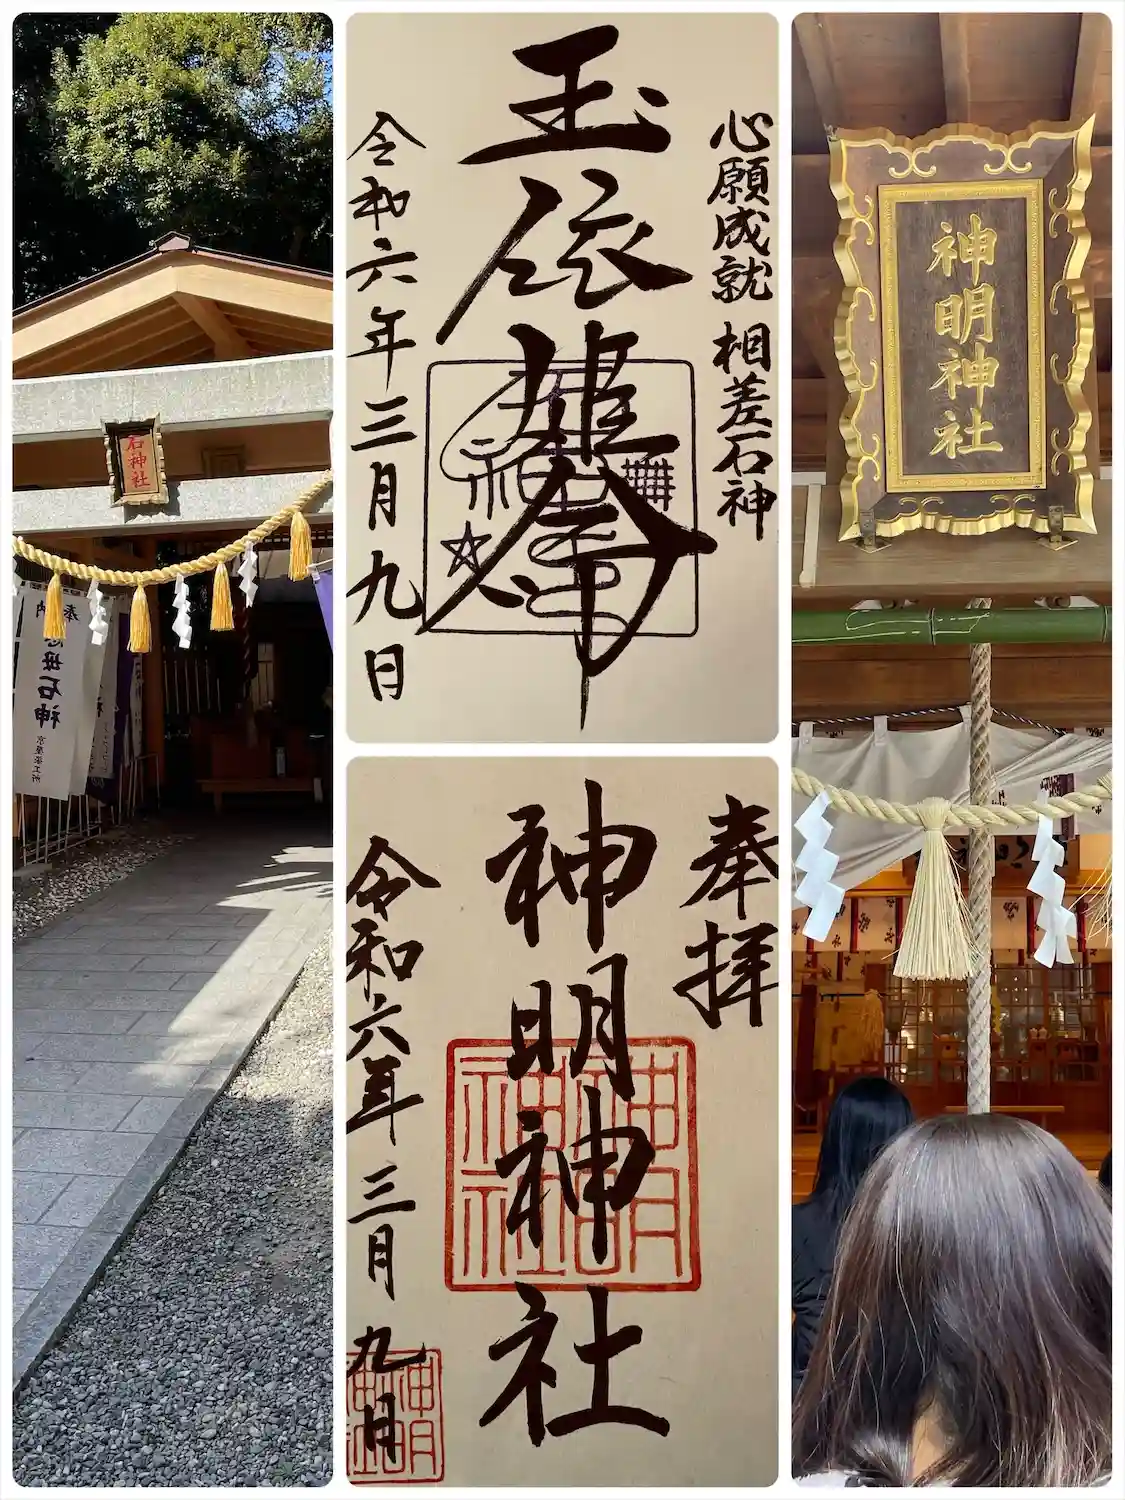 石神社
奉納
石神
京屋染工所
心願成就 相差石神
玉依姫命
令和六年三月九日
石神
奉拝
神明神社
令和六年三月九日
神明神社
神明神社
神明神社